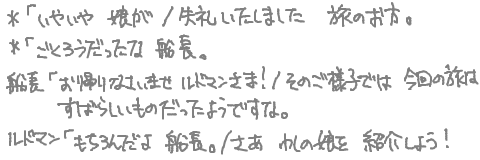 ＊「いやいや 娘が/失礼いたしました 旅のお方。
＊「ごくろうだったな 船長。
船長「お帰りなさいませ ルドマンさま!/そのご様子では 今回の旅は
すばらしいものだったようですな。
ルドマン「もちろんだよ 船長。/さあ わしの娘を 紹介しよう!